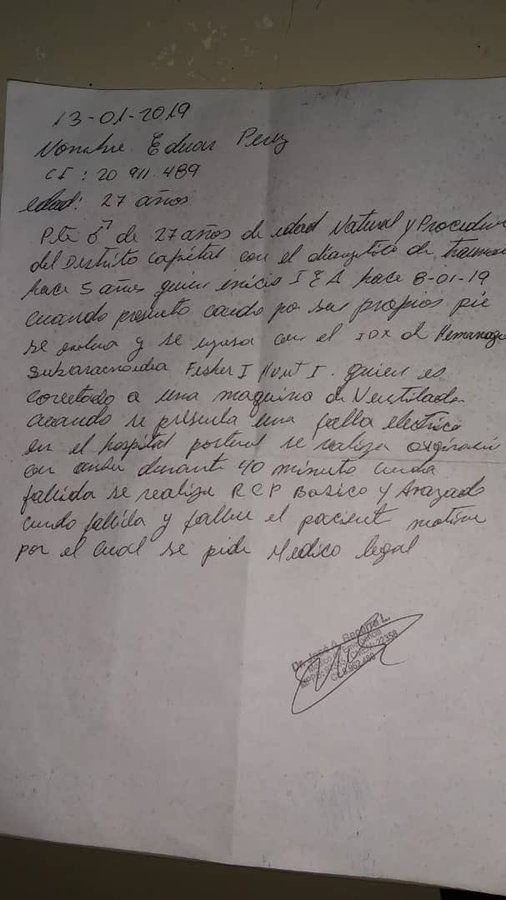 13-01-2019
Nombre Eduar Perez
CI: 20 911 489
edad: 27 años
Pte ♂ de 27 años de edad Natural y Procedente
del Distrito capital con el diagnotico de
hace 5 años quien inicio I E A hace 8-01-19
cuando presento caida por sus propios pie
se evalua y se ingresa con el IDX de Hemorragia
subaracnoidea Fisher I Hunt I. quien es
conectado a una maquina de Ventilador
cuando se presenta una falla electrica
en el hospital posterior se realiza oxigenacion
con ambu durante 40 minuto
fallida se realiza RCP Basico y Avazado
fallida y fallece el pacient motivo
por el cual se pide Medico legal
Dr. José A.
22358